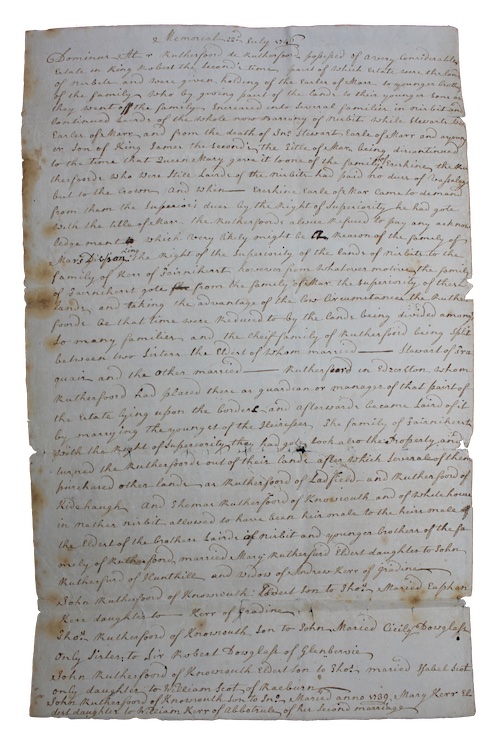 Memorial 22nd July
Dominus Rutherfoord de Rutherfoord possesed of a very considerable
Estate in King Robert the Second's time, part of which Estate were the lands
of Nisbite and were given holding of the Earles of Marr to younger brothers
of the family, who by giving part of the lands to their younger sons
they went off the family, Encreased into Several families in Nisbit and
continued Lairds of the whole now Barrony of Nisbite while Stewarts were
Earles of Marr, and from the death of Jno Stewart Earle of Marr and a young
er Son of King James the Second, the Title of Marr being discontinued
to the time that Queen Mary gave it to one of the family of Erskine, the Ru
therfoords who were Still Lairds of the Nisbite had paid no dues of
but to the Crown, And when Erskine Earle of Mar came to demand
from them the Superior's dues by the Right of Superiority he had gote
with the title of Marr, the Rutherfoords alwise Refused to pay any acknow
ledgement to which very likely might be a Reason of the family of
Mar's Dispon:ing the Right of the Superiority of the lands of Nisbite to the
family of Kerr of Fairnihert however from whatever motives the family
of Fairnihert gote from the family of Mar the Superiority of these
lands, and taking the advantage of the low Circumstances the Ruther
foords be that time were Reduced to by the lands being divided among
So many families, and the Cheif family of Rutherfoord being Split
between two Sisters the Eldest of whom married — Stewart of tra
quair and the other married — Rutherfoord in Edzarton whom
Rutherfoord had placed there as guardian or manager of that part of
the Estate lying upon the Borders and afterwards became Laird of it
by marrying the youngest of the Heiresses. The family of Fairnihert
with the Right of Superiority they had gote took also the Property and
turned the Rutherfoords out of their lands after which Severals of them
purchased other lands as Rutherfoord of Ladfield and Rutherfoord of
Kidehaugh, And Thomas Rutherfoord of Knowsouth and of Whole house
in nether Nisbit allowed to have been heir male to the heirs male of
the Eldest of the brothers Lairds of Nisbit and younger brothers of the fa
mely of Rutherfoord, married Mary Rutherfoord Eldest daughter to John
Rutherfoord of Hunthill and widow of Andrew Kerr of gredine
John Rutherfoord of Knowsouth Eldest Son to Thos: Maried Euphan
Kerr daughter to — Kerr of Gradine
Thos: Rutherfoord of Knowsouth Son to John Maried Cicily Dowglass
Only Sister to Sir Robert Dowglass of Glenbervie
John Rutherfoord of Knowsouth Eldest son to Thos: maried Isabel Scot
only daughter to William Scot of Raeburn
John Rutherfoord of Knowsouth Son to Jno: Maried anno 1739 Mary Kerr El
dest daughter to William Kerr of Abbotrule of her Second marriage